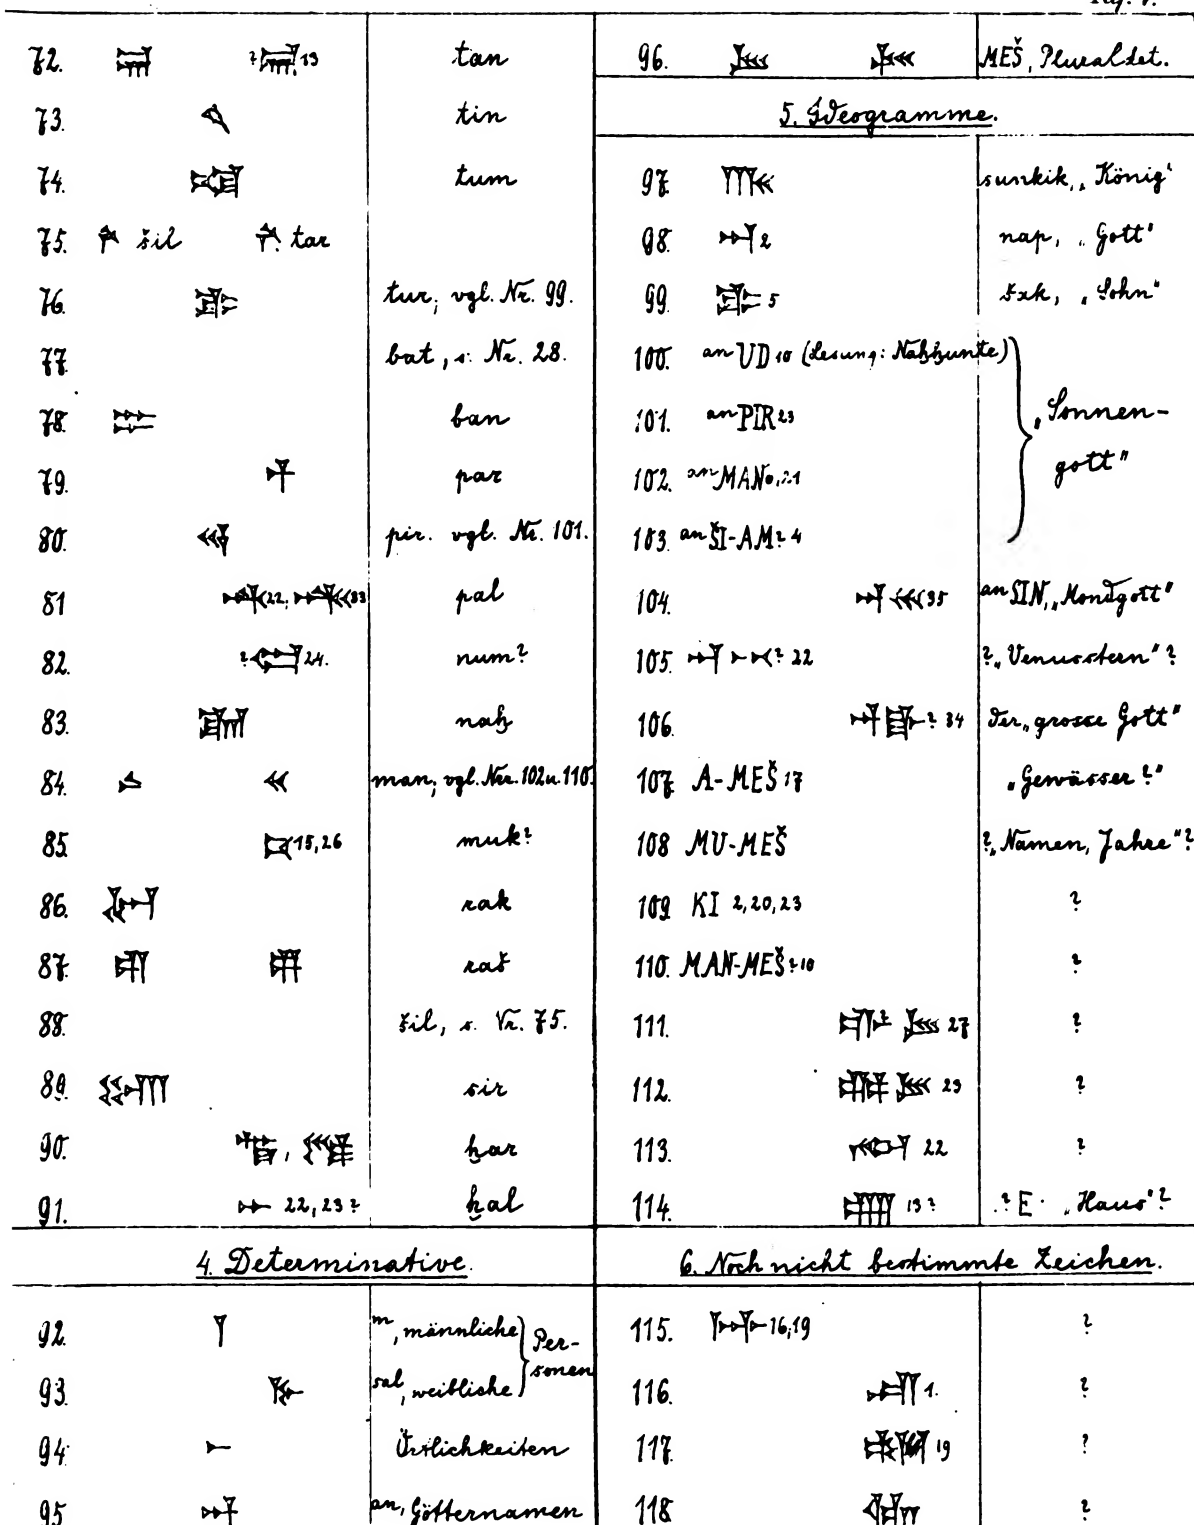 72. ? 13 tan
73. tin
74. tum
75. šil tar
76. tur; vgl. Nr. 99.
77. bat, s. Nr. 28.
78. ban
79. par
80. pir. vgl. Nr. 101.
81 22; 33 pal
82. ? 24. num?
83. naḫ
84. man; vgl. Nrr. 102 u. 110.
85. 15,26 muk?
86. rak
87. raš
88. šil, s. Nr. 75.
89. sir
90. , ḫar
91. 22, 23? ḫal
4. Determinative.
92. m, männliche
93. sal, weibliche
Per-
sonen
94. Örtlichkeiten
95 an, Götternamen
96. MEŠ, Pluraldet.
5. Ideogramme.
97. sunkik, „König“
98. 2 nap, „Gott“
99. 5 šak, „Sohn“
100. an UD 10 (Lesung: Naḫḫunte)
101. an PIR 23
102. an MAN
103. an ŠI-AM? 4
„Sonnen-
gott“
104. 35 an SIN, „Mondgott“
105. ? 22 ? „Venusstern“ ?
106. ? 34 Der „grosse Gott“
107. A-MEŠ 17 „Gewässer?“
108 MU-MEŠ ? „Namen, Jahre“ ?
109 KI 2,20,23 ?
110. MAN-MEŠ ? 10 ?
111. ? 27 ?
112. 23 ?
113. 22 ?
114. 13? ? E „Haus“?
6. Noch nicht bestimmte Zeichen.
115. 16,19 ?
116. 1. ?
117. 19 ?
118 ?